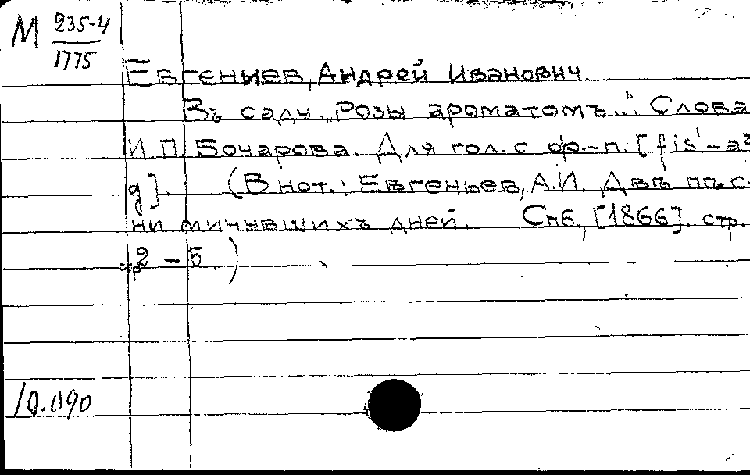 М 235-4
1775
Евгеньев, Андрей Иванович
Въ саду „Розы ароматомъ..." Слова
И.П. Бочарова. Для гол. с ф.-п. [fis'-a²
g]. (В нот.: Евгеньев, А.И. Двѣ пѣс-
ни минувшихъ дней. Спб., [1866]. стр.
2-5)
10.090